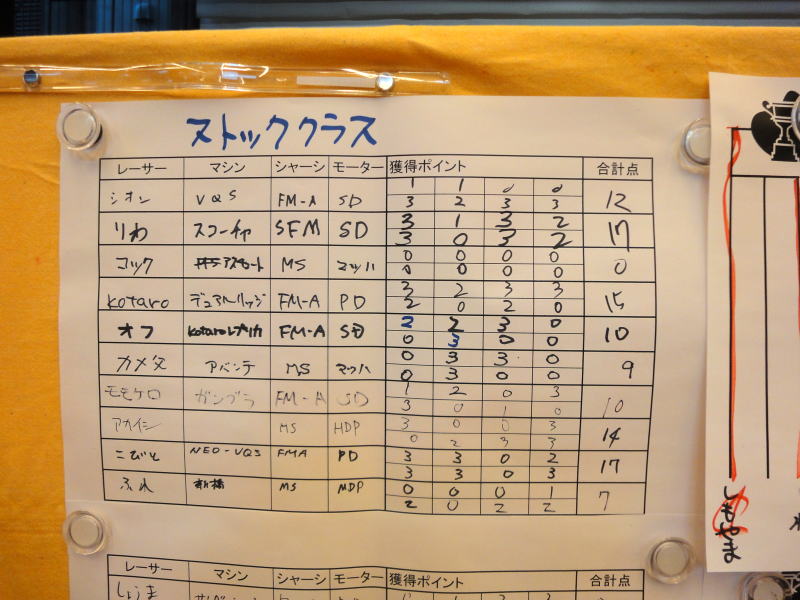 ストッククラス
レーサー マシン シャーシ モーター 獲得ポイント 合計点
シオン VQS FM-A SD 1 1 0 0 12
3 2 3 3
りわ スコーチャ SFM SD 3 1 3 2 17
3 0 3 2
コック MS マッハ 0 0 0 0 0
0 0 0 0
kotaro デュアルリッジ FM-A PD 3 2 3 3 15
2 0 2 0
オフ kotaroレプリカ FM-A SD 2 2 3 0 10
0 3 0 0
カメ父 アバンテ MS マッハ 0 3 3 0 9
0 3 0 0
モモケロ ガンブラ FM-A SD 1 2 0 3 10
3 0 1 0
アカイシ MS HDP 3 0 0 3 14
0 2 3 3
こびと NEO-VQS FMA PD 3 3 0 2 17
3 3 0 3
ふれ MS MDP 0 0 0 1 7
2 0 2 2
レーサー マシン シャーシ モーター 獲得ポイント 合計点
しょうま